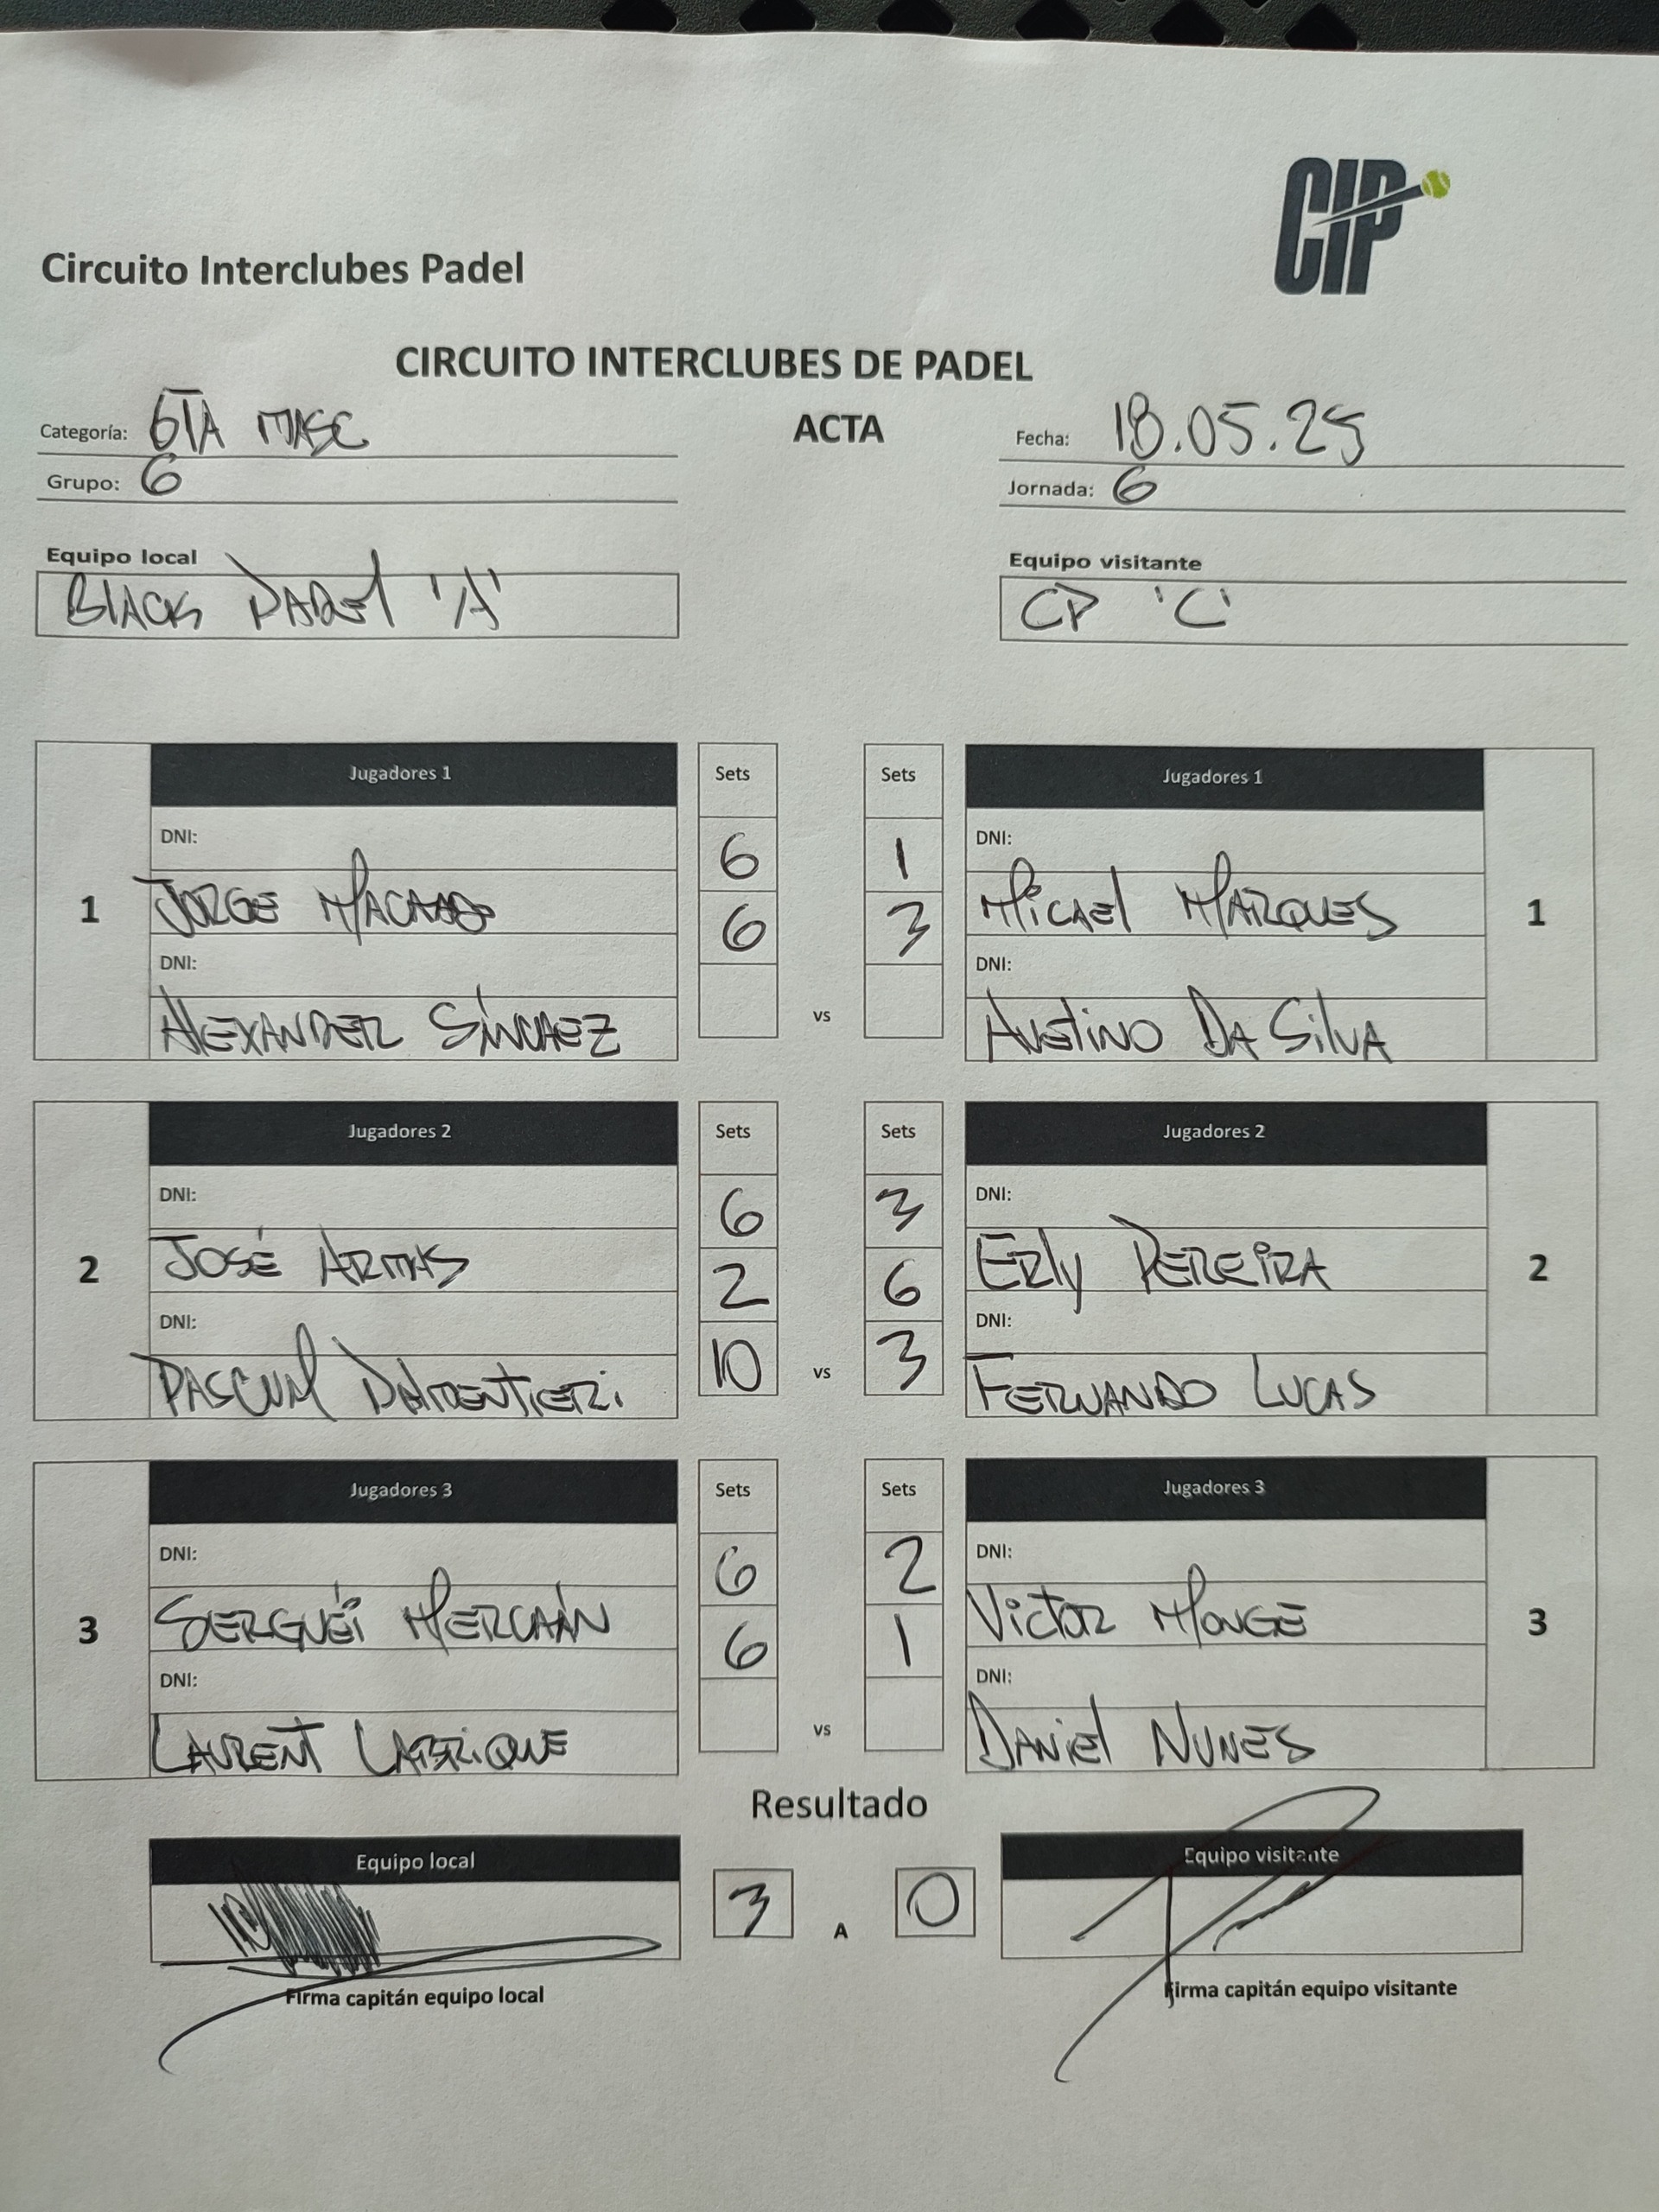 CIP
Circuito Interclubes Padel
CIRCUITO INTERCLUBES DE PADEL
Categoría: 6TA MASC
ACTA
Fecha: 18.05.25
Grupo: 6
Jornada: 6
Equipo local
Equipo visitante
BLACK PADEL 'A'
CP 'C'
Jugadores 1 Sets Sets Jugadores 1
DNI: 6 1 DNI:
JORGE MACHADO 6 3 MICAEL MARQUES
1 1
DNI: DNI:
ALEXANDER SÁNCHEZ vs AUSTINO DA SILVA
Jugadores 2 Sets Sets Jugadores 2
DNI: 6 3 DNI:
JOSÉ ARMAS 2 6 ERLY PEREIRA
2 2
DNI: DNI:
PASCUAL 10 vs 3 FERNANDO LUCAS
Jugadores 3 Sets Sets Jugadores 3
DNI: 6 2 DNI:
SERGUÉI 6 1 VICTOR MONGE
3 3
DNI: DNI:
LAURENT vs DANIEL NUNES
Resultado
Equipo local Equipo visitante
3 A 0
Firma capitán equipo local Firma capitán equipo visitante